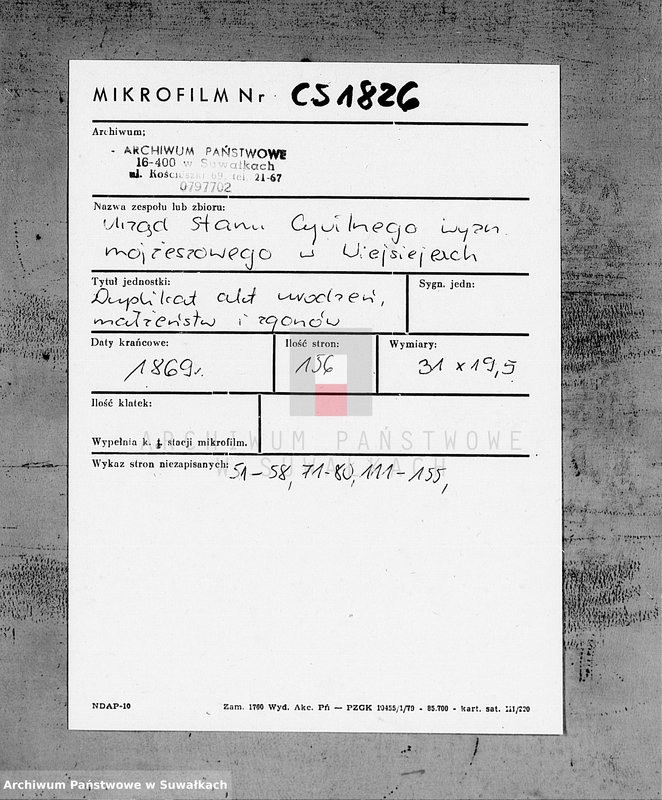 MIKROFILM Nr CS1826
Archiwum;
ARCHIWUM PAŃSTWOWE
16-400 w Suwałkach
ul. Kościuszki 69, tel. 21-67
0797702
Nazwa zespołu lub zbioru:
Urząd Stanu Cywilnego wyzn.
mojżeszowego w Wiejsiejach
Tytuł jednostki:
Duplikat akt urodzeń,
małżeństw i zgonów
Sygn. jedn:
Daty krańcowe:
1869r.
Ilość stron:
156
Wymiary:
31 x 19,5
Ilość klatek:
Wypełnia k. t. stacji mikrofilm.
ARCHIWUM PAŃSTWOWE
W SUWAŁKACH
Wykaz stron niezapisanych: 51-58, 71-80, 111-155,
NDAP-10
Zam. 1760 Wyd. Akc. Pń — PZGK 10455/1/79 - 85.700 - kart. sat. III/220
Archiwum Państwowe w Suwałkach